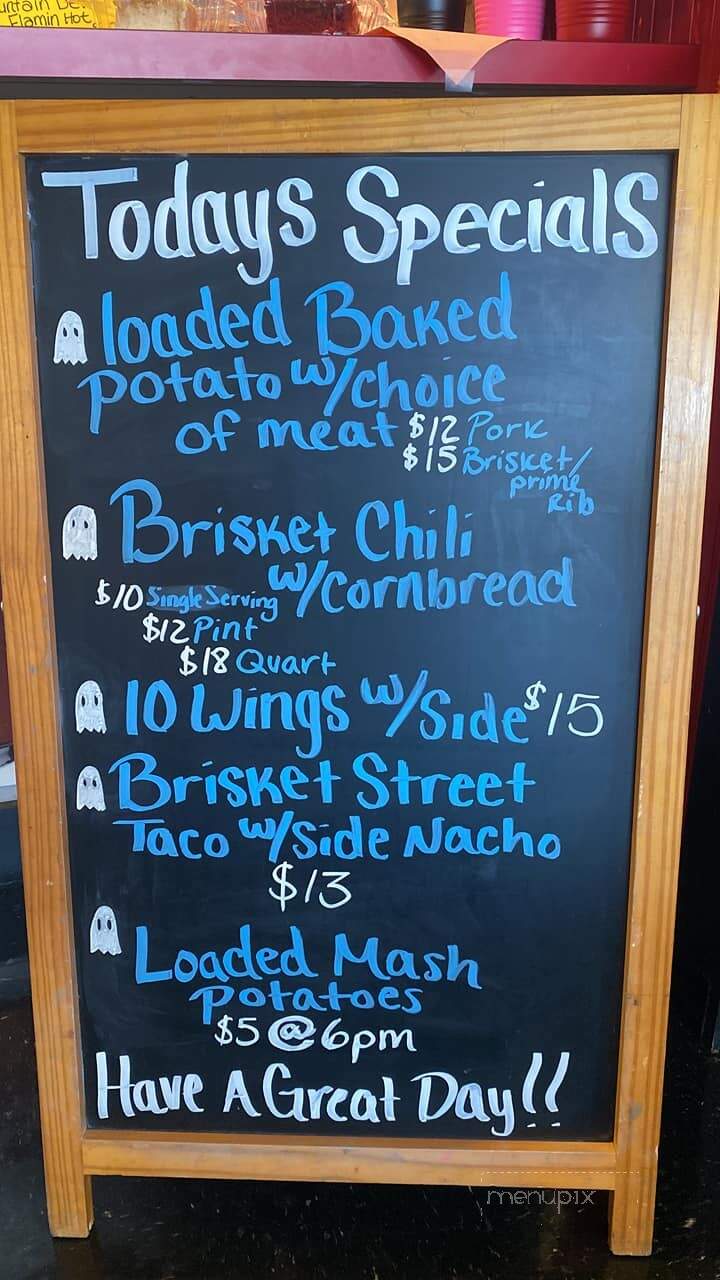 Flamin Hot
Todays Specials
loaded Baked
potato w/choice
of meat $12 Pork
$15 Brisket/
prime
Rib
Brisket Chili
w/cornbread
$10 Single Serving
$12 Pint
$18 Quart
10 Wings w/Side $15
Brisket Street
Taco w/Side Nacho
$13
Loaded Mash
potatoes
$5 @ 6pm
Have A Great Day!!
menupix